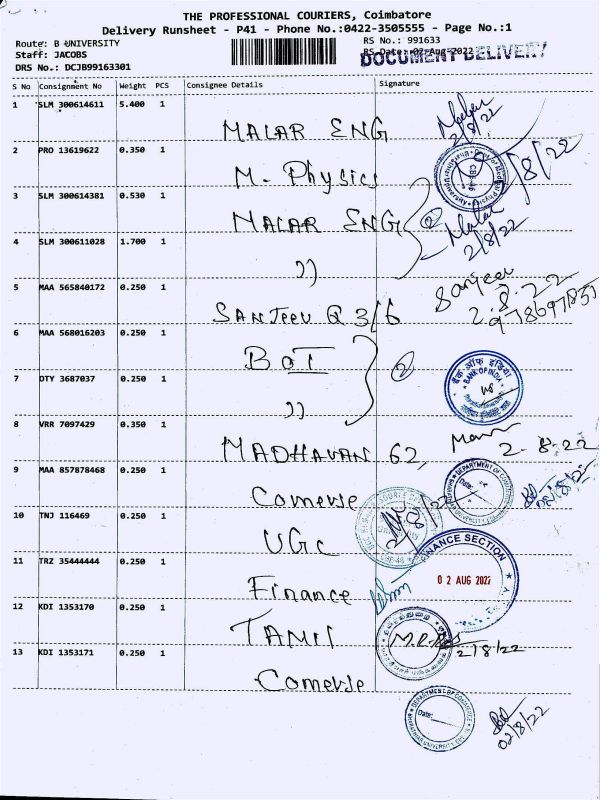 THE PROFESSIONAL COURIERS, Coimbatore
Delivery Runsheet - P41 - Phone No.:0422-3505555 - Page No.:1
Route: B UNIVERSITY
RS No.: 991633
Staff: JACOBS
RS Date: 02-Aug-2022
DOCUMENT DELIVERY
DRS No.: DCJB99163301
S No Consignment No Weight PCS Consignee Details Signature
1 SLM 300614611 5.400 1
MALAR ENG
2/8/22
2 PRO 13619622 0.350 1
M. Physics
2/8/22
3 SLM 300614381 0.530 1
MALAR ENG
2
Malar
4 SLM 300611028 1.700 1
2/8/22
))
5 MAA 565840172 0.250 1
Sanjeev
2.8.22
SANJEEV Q 3/6
6 MAA 568016203 0.250 1
BOI
2
बैंक ऑफ इंडिया
BANK OF INDIA
7 DTY 3687037 0.250 1
))
8 VRR 7097429 0.350 1
MADHAVAN 62,
2-8-22
9 MAA 857878468 0.250 1
Comerse
DEPARTMENT OF COMMERCE
Date:
10 TNJ 116469 0.250 1
UGC
11 TRZ 35444444 0.250 1
Finance
FINANCE SECTION
02 AUG 2022
12 KDI 1353170 0.250 1
TAMIL
2/8/22
13 KDI 1353171 0.250 1
Comerse
DEPARTMENT OF COMMERCE
Date:
02/8/22